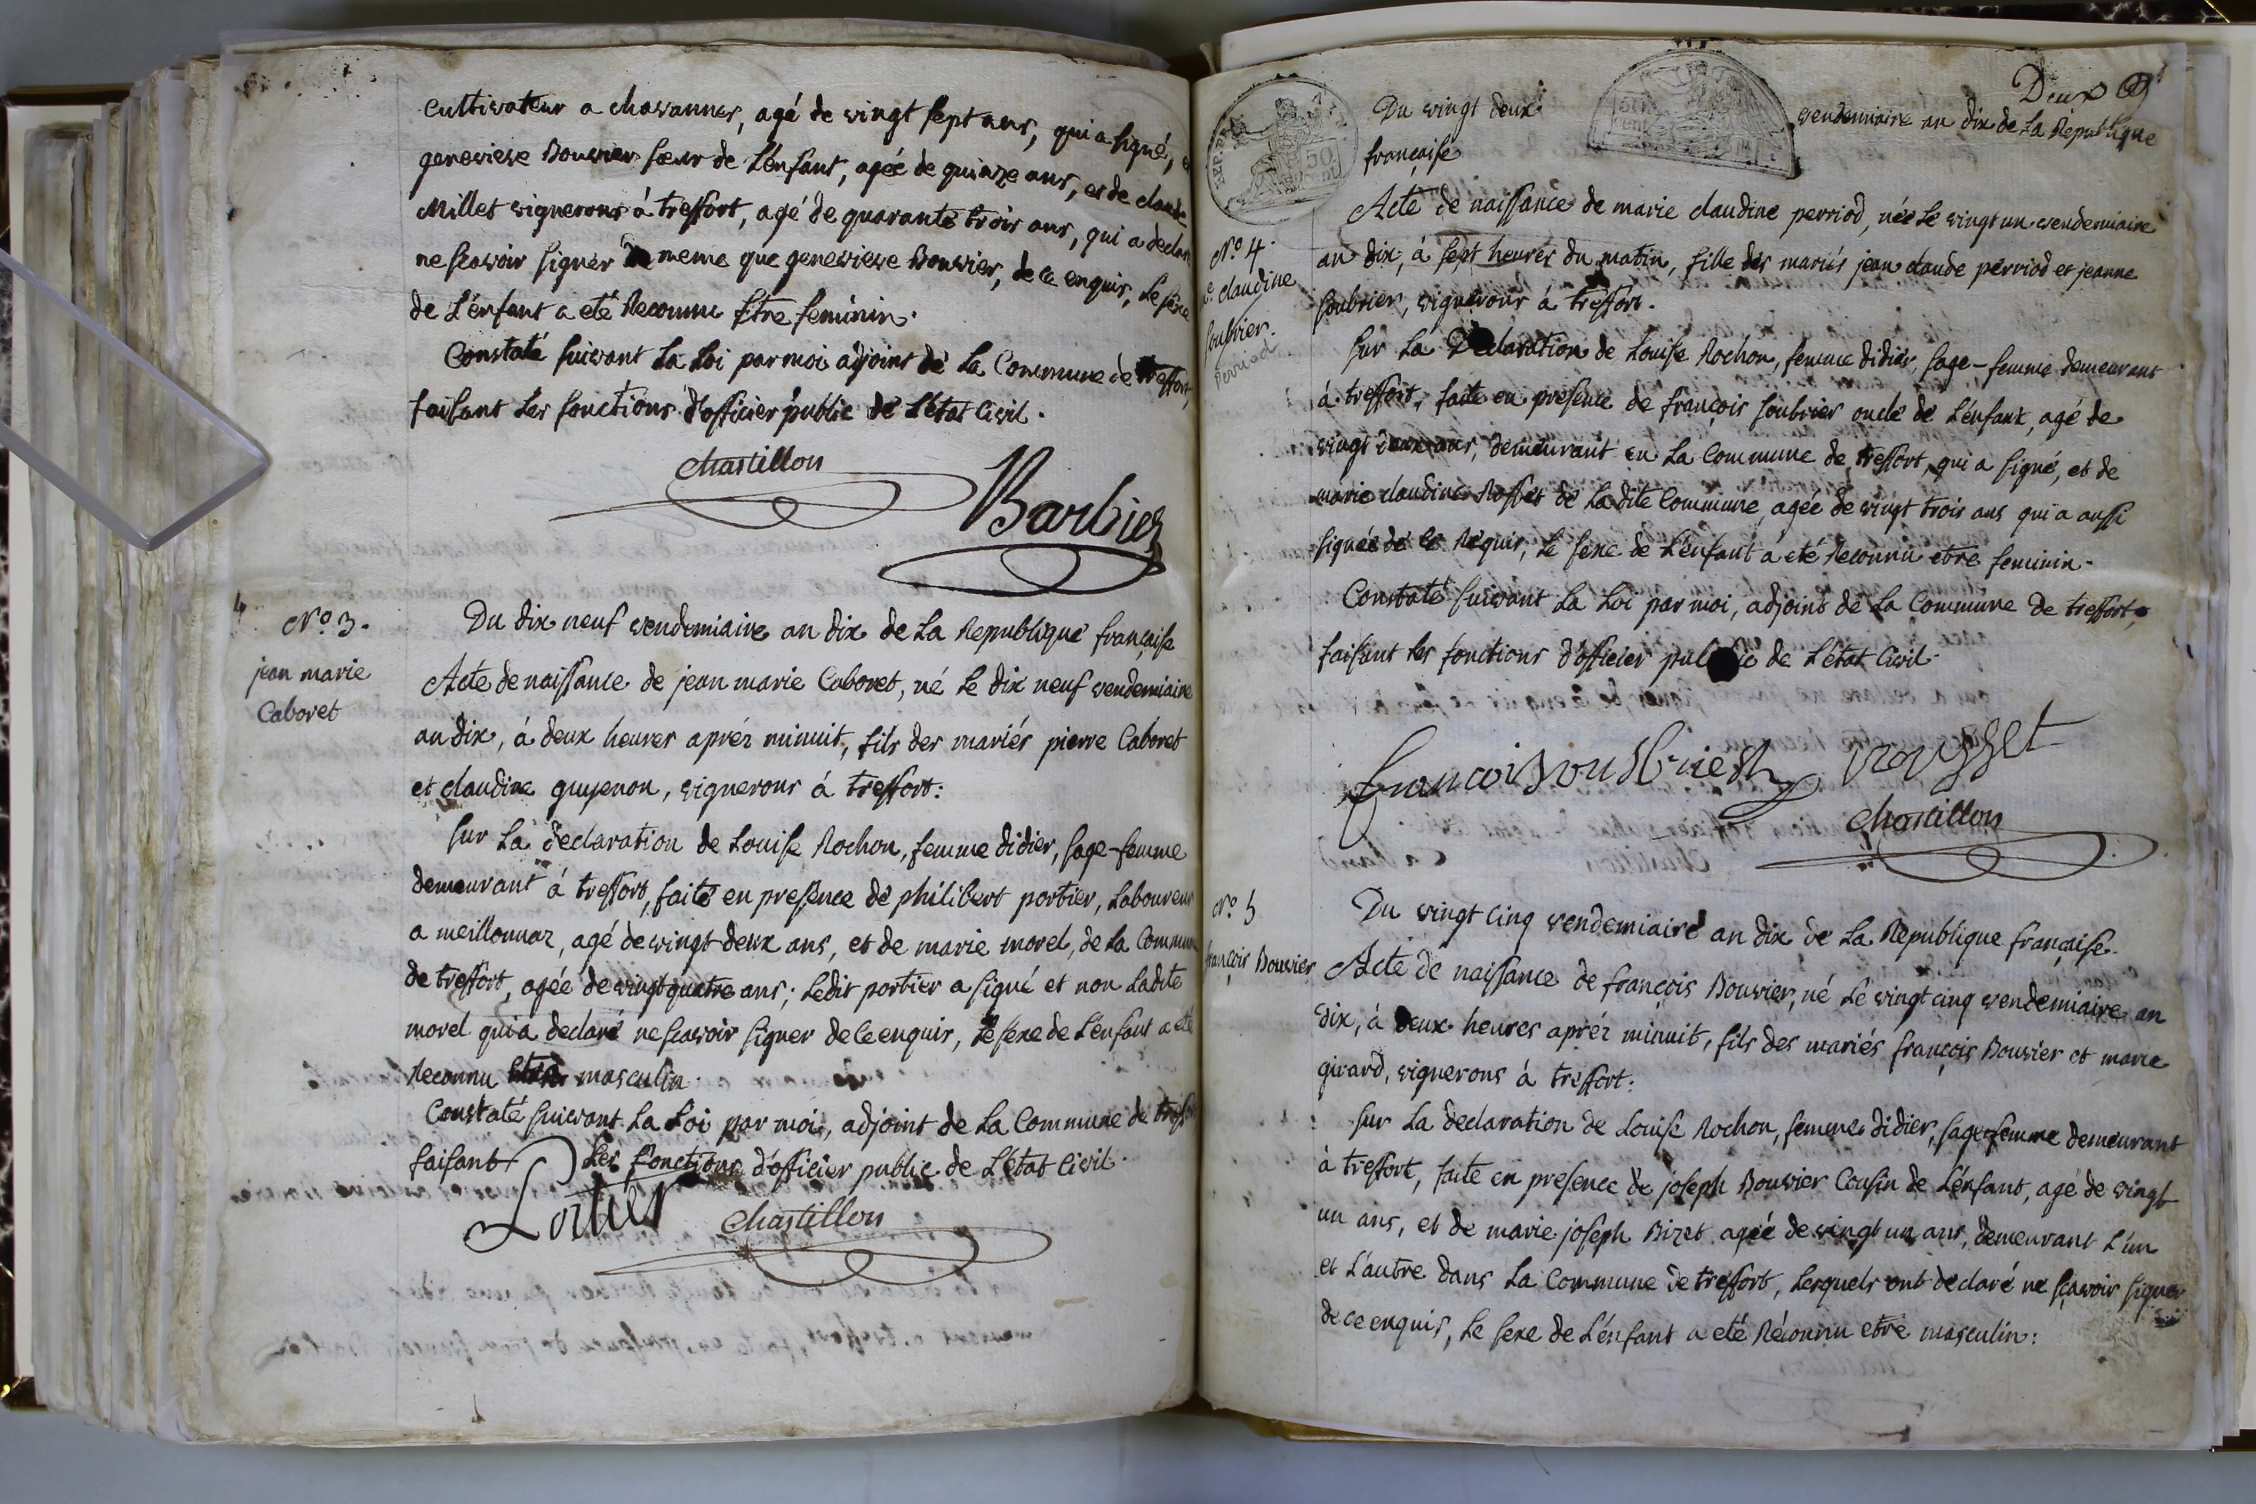 cultivateur a chavannes, agé de vingt sept ans, qui a signé, et
genevieve Bouvier sœur de L'énfant, agée de quinze ans, et de claude
Millet vigneron à treffort, agé de quarante trois ans, qui a declaré
ne sçavoir signer de meme que genevieve Bouvier, de ce enquis, Le sexe
de L'énfant a eté Reconnu Etre feminin.
Constaté suivant La Loi par moi adjoint de La Commune de treffort,
faisant Les fonctions d'officier public de L'état Civil.
chastillon
Barbier
4
N.o 3.
jean marie
Caboret
Du dix neuf vendemiaire an dix de La Republique française
Acte de naissance de jean marie Caboret, né Le dix neuf vendemiaire
an dix, à deux heures apréz minuit, fils des mariés pierre Caboret
et claudine guyenon, vignerons à treffort:
sur La declaration de Louise Rochon, femme didier, sage-femme
demeurant à treffort, faite en presence de philibert portier, Laboureur
a meillonnaz, agé de vingt deux ans, et de marie morel, de La Commune
de treffort, agée de vingt quatre ans; Ledit portier a signé et non Ladite
morel qui a declaré ne sçavoir signer de ce enquis, Le sexe de L'énfant a eté
Reconnu masculin.
Constaté suivant La Loi par moi, adjoint de La Commune de treffort
faisant Les fonctions d'officier public de L'état Civil.
Portier
chastillon
REP. FRA
50
cent
Deux
Du vingt deux vendemiaire an dix de La Republique
française
N.o 4.
claudine
soubrier.
Perriod
Acte de naissance de marie claudine perriod, née Le vingt un vendemiaire
an dix, à sept heures du matin, fille des mariés jean claude perriod et jeanne
soubrier, vignerons à treffort.
sur La Declaration de Louise Rochon, femme didier, sage-femme demeurant
à treffort, faite en presence de françois soubrier oncle de L'énfant, agé de
vingt deux ans, demeurant en La Commune de treffort, qui a signé, et de
marie claudine Rosset de La dite Commune, agée de vingt trois ans qui a aussi
signée de ce Réquis, Le sexe de L'énfant a eté Reconnu etre feminin.
Constaté suivant La Loi par moi, adjoint de La Commune de treffort,
faisant les fonctions d'officier public de L'état Civil.
francoi Soubrier
rousset
chastillon
N.o 5
françois Bouvier
Du vingt Cinq vendemiaire an dix de La Republique française.
Acte de naissance de françois Bouvier, né Le vingt cinq vendemiaire an
dix, à deux heures apréz minuit, fils des mariés françois Bouvier et marie
girard, vignerons à treffort:
sur La declaration de Louise Rochon, femme didier, sage-femme demeurant
à treffort, faite en presence de joseph Bouvier Cousin de L'énfant, agé de vingt
un ans, et de marie joseph Bizet agée de vingt un ans, demeurant L'un
et L'autre dans La Commune de treffort, Lesquels ont declaré ne sçavoir signer
de ce enquis, Le sexe de L'énfant a eté Réconnu etre masculin: